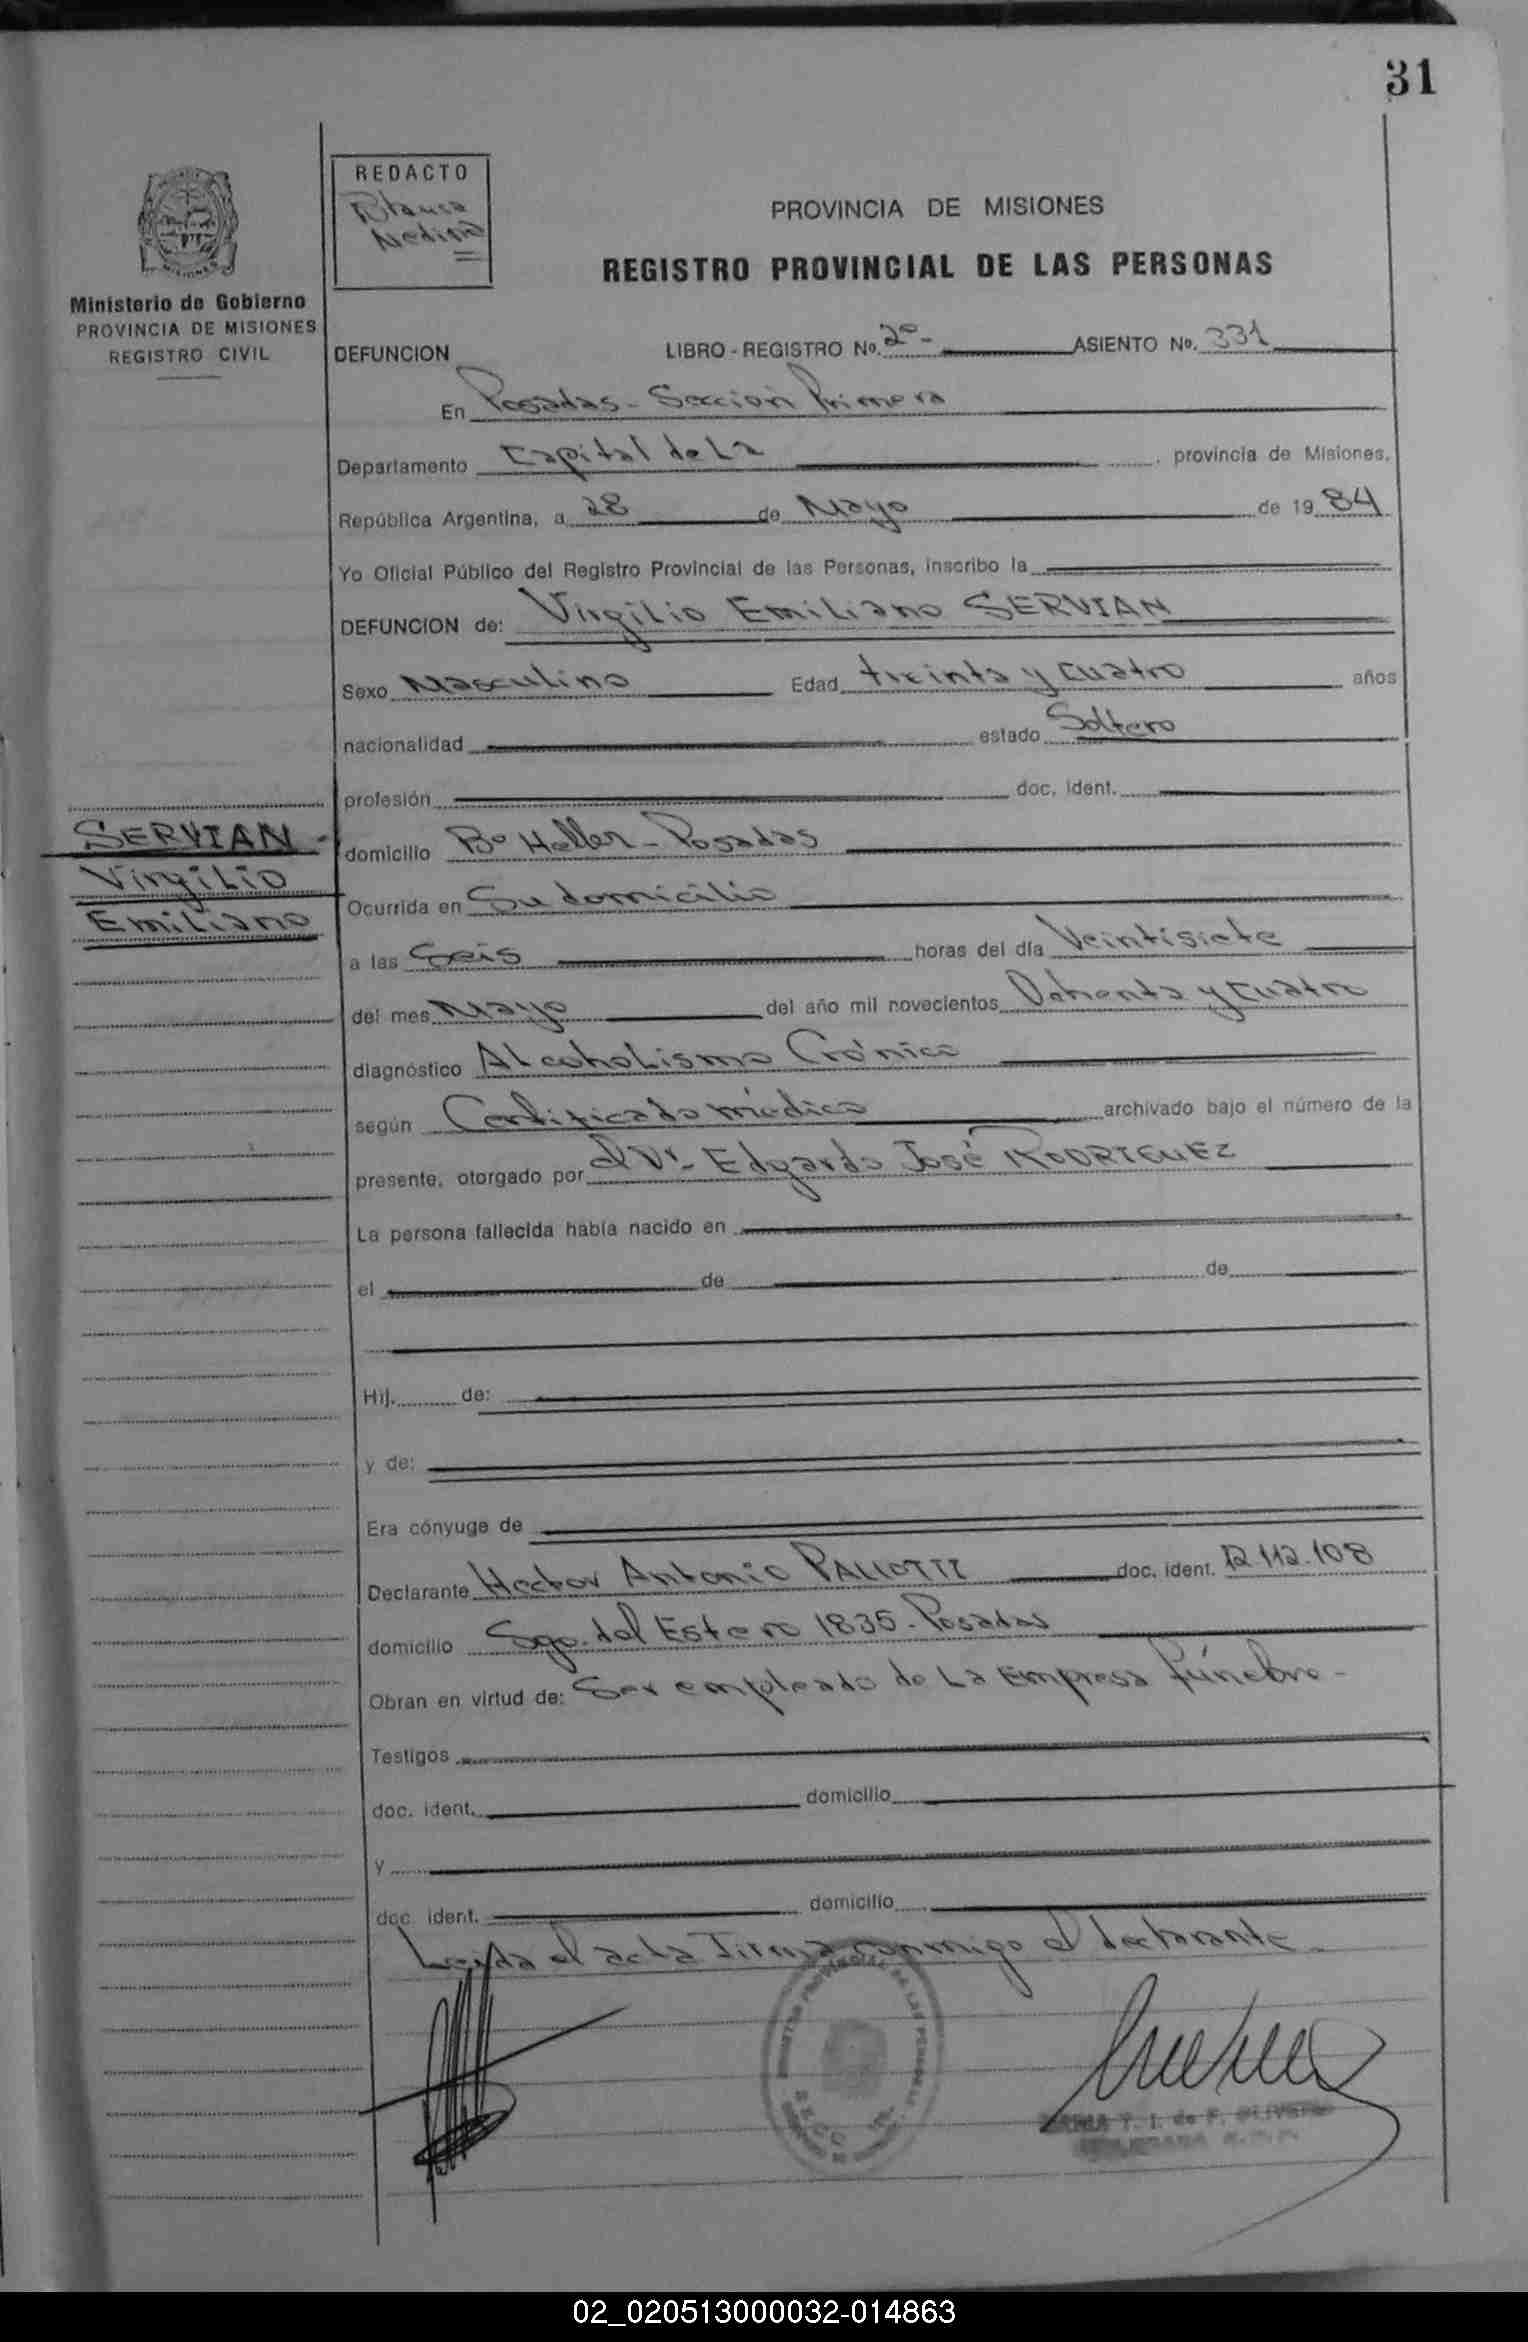 31
REDACTO
Blanca
Medina
PROVINCIA DE MISIONES
REGISTRO PROVINCIAL DE LAS PERSONAS
MISIONES
Ministerio de Gobierno
PROVINCIA DE MISIONES
REGISTRO CIVIL
DEFUNCION LIBRO - REGISTRO No. 2º - ASIENTO No. 331
En Posadas - Sección Primera
Departamento Capital de La , provincia de Misiones,
República Argentina, a 28 de Mayo de 19 84
Yo Oficial Público del Registro Provincial de las Personas, inscribo la
DEFUNCION de: Virgilio Emiliano SERVIAN
Sexo Masculino Edad treinta y cuatro años
nacionalidad estado Soltero
profesión doc. ident.
SERVIAN -
Virgilio
Emiliano
domicilio Bº Heller - Posadas
Ocurrida en Su domicilio
a las Seis horas del día Veintisiete
del mes Mayo del año mil novecientos Ochenta y cuatro
diagnóstico Alcoholismo Crónico
según Certificado médico archivado bajo el número de la
presente, otorgado por el Dr. Edgardo José RODRIGUEZ
La persona fallecida había nacido en
el de de
Hij. de:
y de:
Era cónyuge de
Declarante Hector Antonio PALLOTTI doc. ident. 12.112.108
domicilio Sgo. del Estero 1835 - Posadas
Obran en virtud de: Ser empleado de La Empresa fúnebre -
Testigos
doc. ident. domicilio
y
doc. ident. domicilio
Leída el acta firma conmigo el declarante -
REGISTRO PROVINCIAL DE LAS PERSONAS
T. I. de F. OLIVERA
02_020513000032-014863